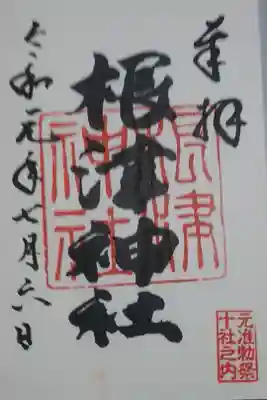 奉拝
根津神社
根津
神社
令和元年七月六日
元准勅祭
十社之内